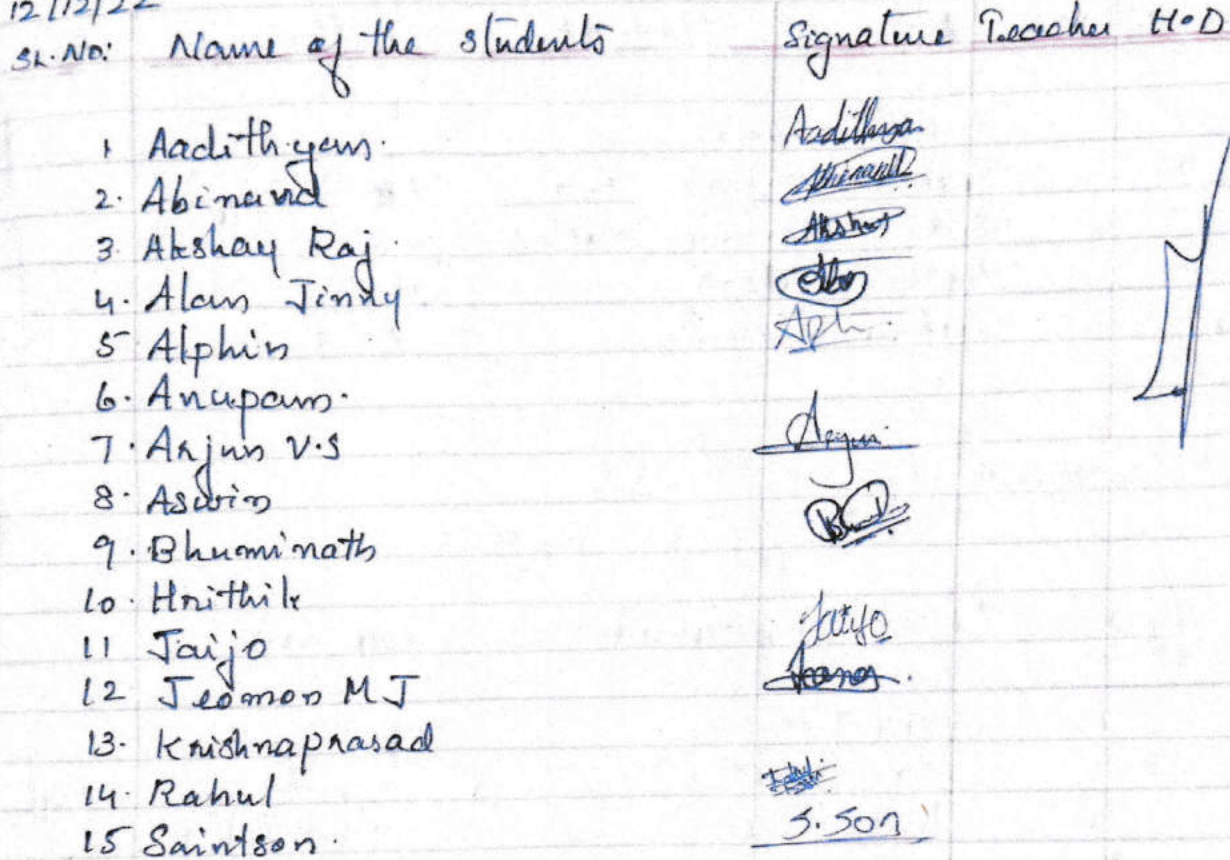 12/12/22
SL.NO: Name of the students Signature Teacher H.O.D
1 Aadithyan. Aadithya
2. Abinand Abhinandh
3. Akshay Raj. Akshay
4. Alan Jinny
5 Alphin
6. Anupam.
7. Arjun V.S Arjun
8. Aswin
9. Bhuminath
10. Hrithik
11 Jaijo Jaijo
12 Jeomon M J
13. Krishnaprasad
14. Rahul
15 Saintson. S.Son